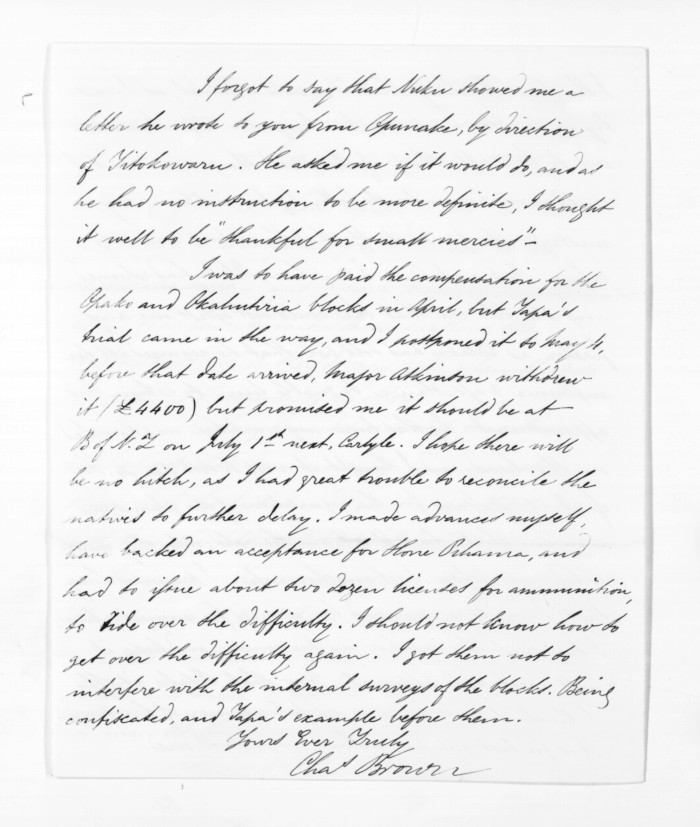 I forgot to say that Nuku showed me a
letter he wrote to you from Opunake, by direction
of Titokowaru. He asked me if it would do, and as
he had no instruction to be more definite, I thought
it well to be "thankful for small mercies" –
I was to have paid the compensation for the
Opako and Okahutiria blocks in April, but Tapa's
trial came in the way, and I postponed it to May 4,
before that date arrived, Major Atkinson withdrew
it (£4400) but promised me it should be at
B of N.Z on July 1st next, Carlyle. I hope there will
be no hitch, as I had great trouble to reconcile the
natives to further delay. I made advances myself,
have backed an acceptance for Hone Pihama, and
had to issue about two dozen licenses for ammunition,
to tide over the difficulty. I should not know how to
get over the difficulty again. I got them not to
interfere with the internal surveys of the blocks. Being
confiscated, and Tapa's example before them.
Yours Ever Truly
Chas Brown